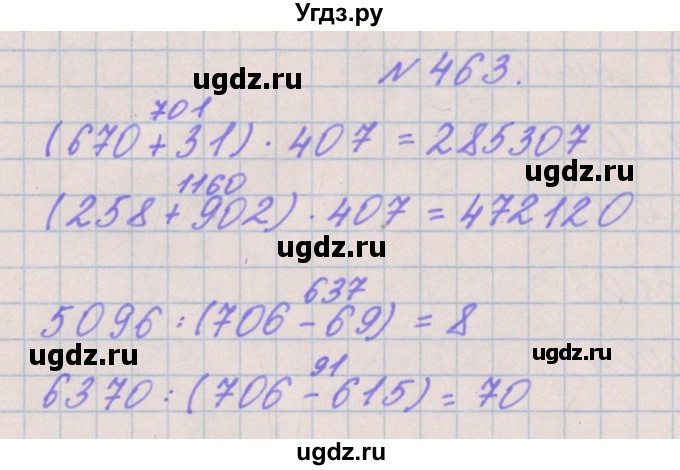 Угдз.ру
№ 463.
ugdz.ru
701
(670 + 31) · 407 = 285307
ugdz.ru
1160
(258 + 902) · 407 = 472120
ugdz.ru
637
5096 : (706 - 69) = 8
ugdz.ru ugdz.ru
91
6370 : (706 - 615) = 70
ugdz.ru